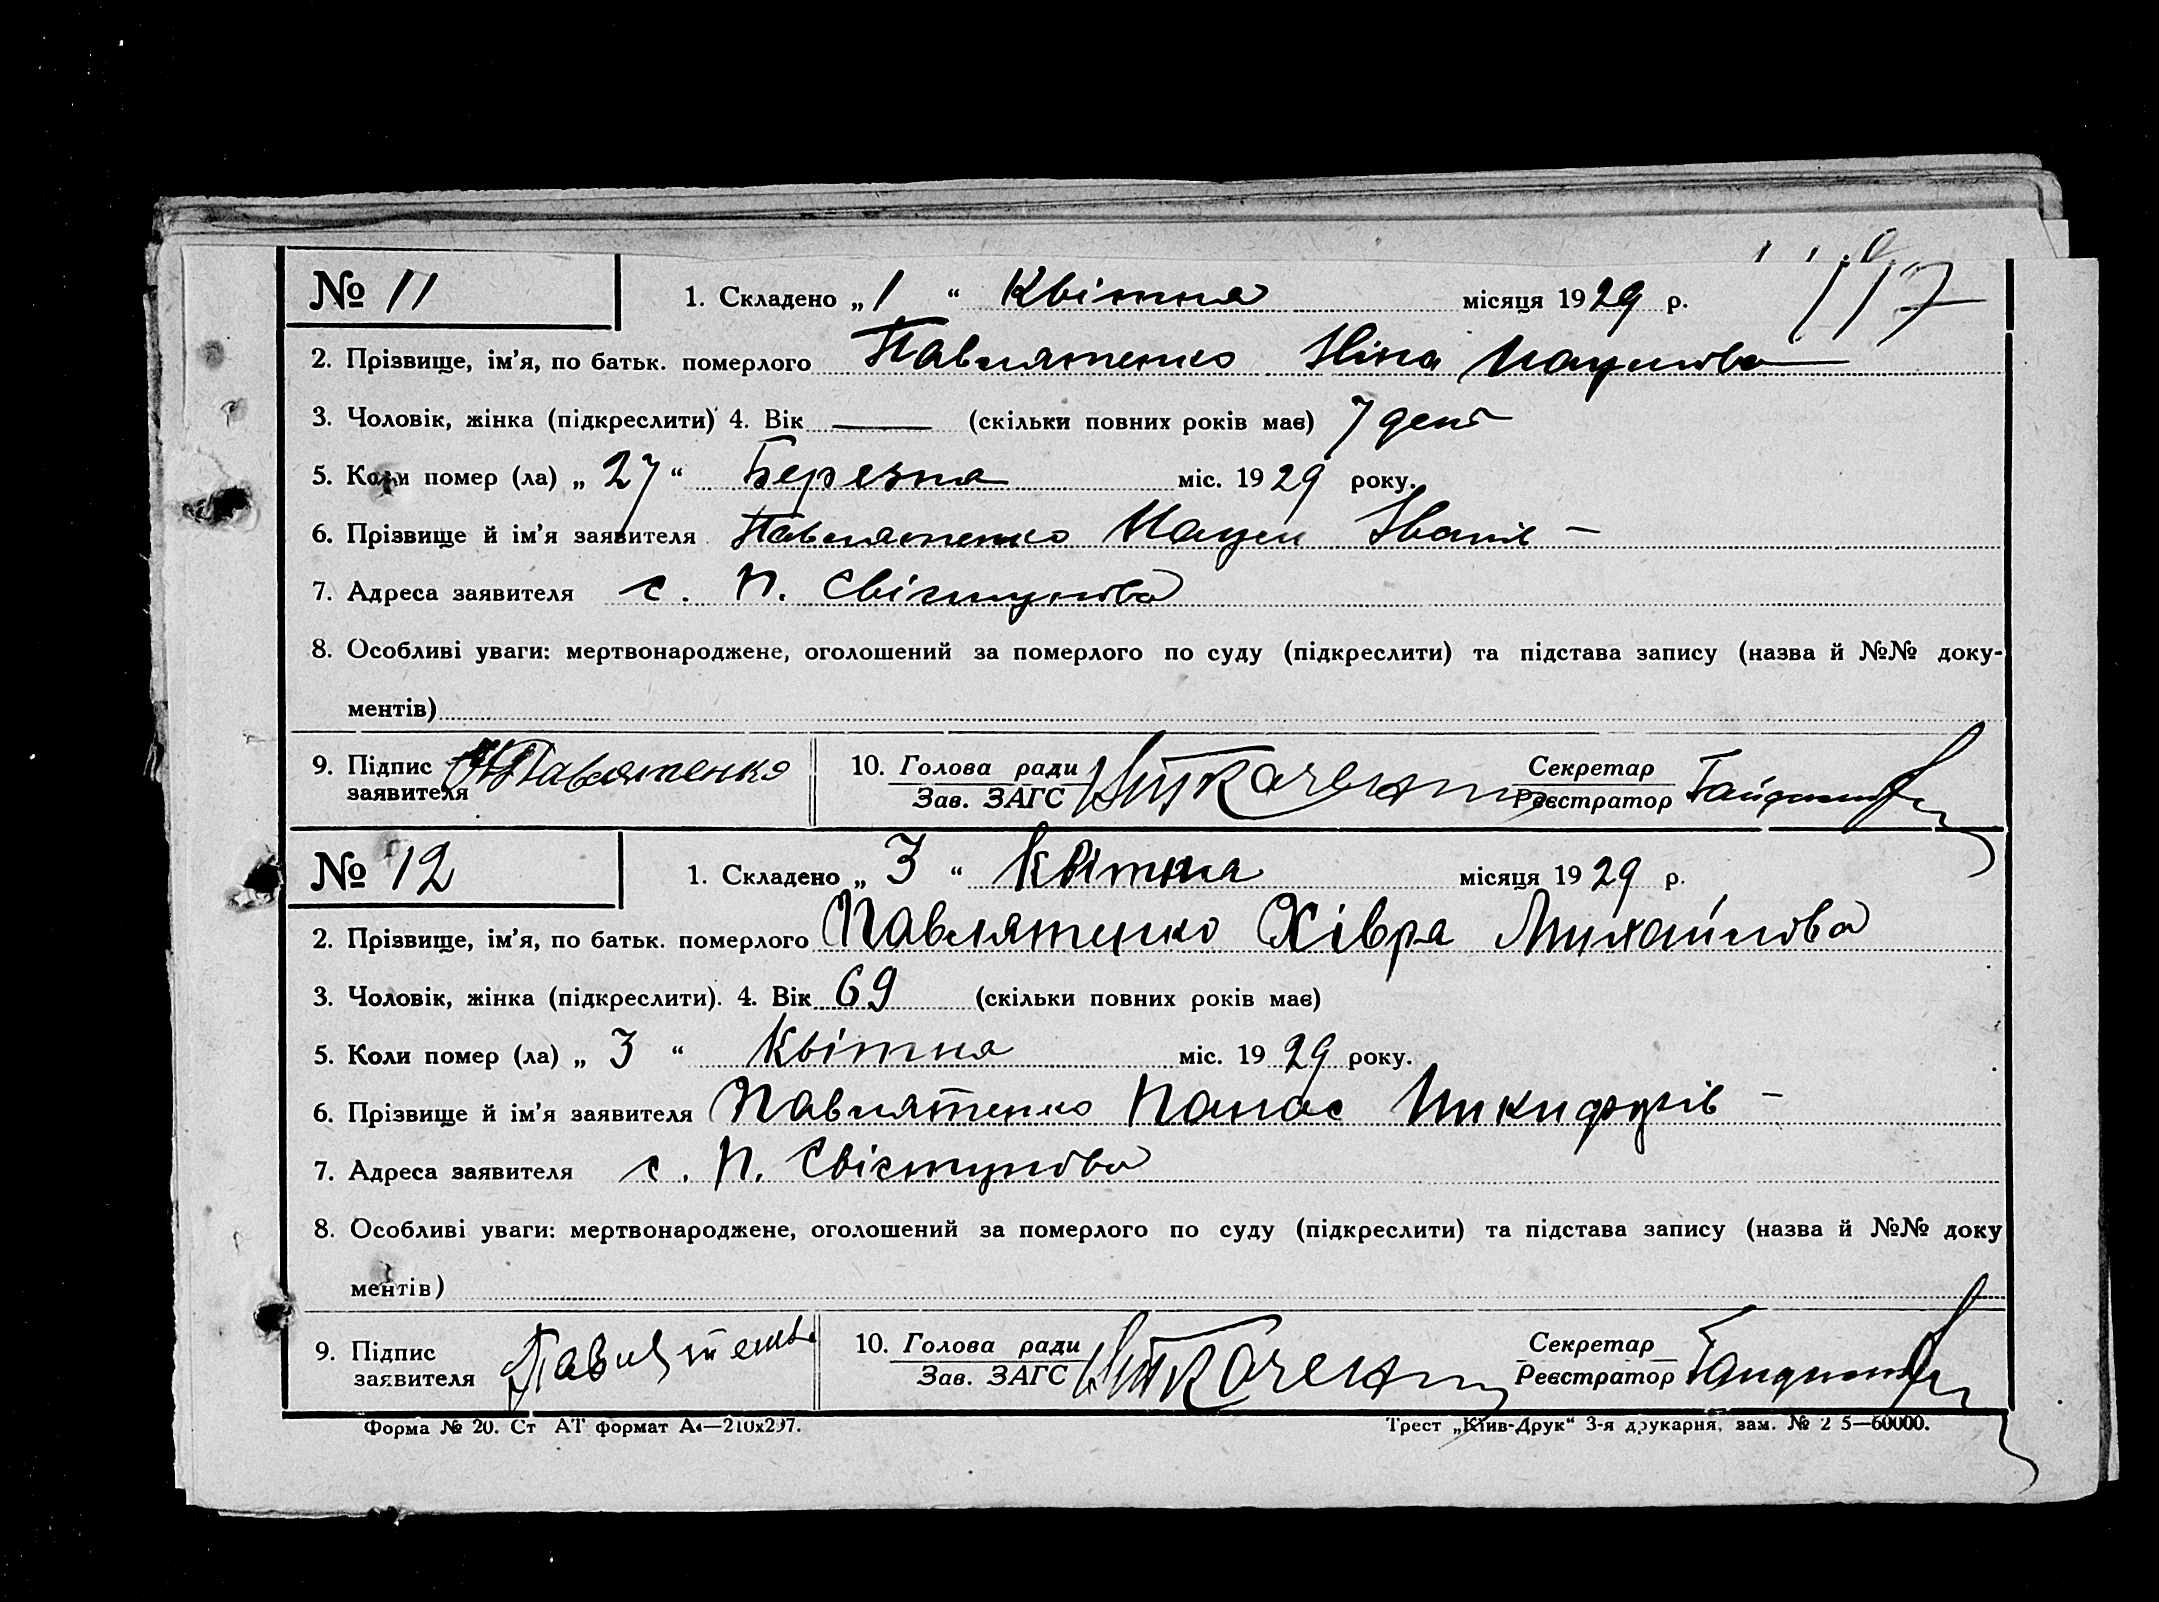 117
№ 11 1. Складено „ 1 “ Квітня місяця 1929 р.
2. Прізвище, ім’я, по батьк. померлого Павлятенко Ніна Наумова
3. Чоловік, жінка (підкреслити) 4. Вік — (скільки повних років має) 7 день
5. Коли помер (ла) „ 27 “ Березня міс. 1929 року.
6. Прізвище й ім’я заявителя Павлятенко Наум Іванів –
7. Адреса заявителя с. П. Свістунова
8. Особливі уваги: мертвонароджене, оголошений за померлого по суду (підкреслити) та підстава запису (назва й №№ доку-
ментів)
9. Підпис заявителя Н Павлятенко 10. Голова ради Зав. ЗАГС Секретар Реєстратор
№ 12 1. Складено „ 3 “ Квітня місяця 1929 р.
2. Прізвище, ім’я, по батьк. померлого Павлятенко Хівра Михайлова
3. Чоловік, жінка (підкреслити). 4. Вік 69 (скільки повних років має)
5. Коли помер (ла) „ 3 “ Квітня міс. 1929 року.
6. Прізвище й ім’я заявителя Павлятенко Панас Никифорів –
7. Адреса заявителя с. П. Свістунова
8. Особливі уваги: мертвонароджене, оголошений за померлого по суду (підкреслити) та підстава запису (назва й №№ доку
ментів)
9. Підпис заявителя Павлятенко 10. Голова ради Зав. ЗАГС Секретар Реєстратор
Форма № 20. Ст АТ формат А4—210х297. Трест „Київ-Друк“ 3-я друкарня, зам. № 2 5—60000.